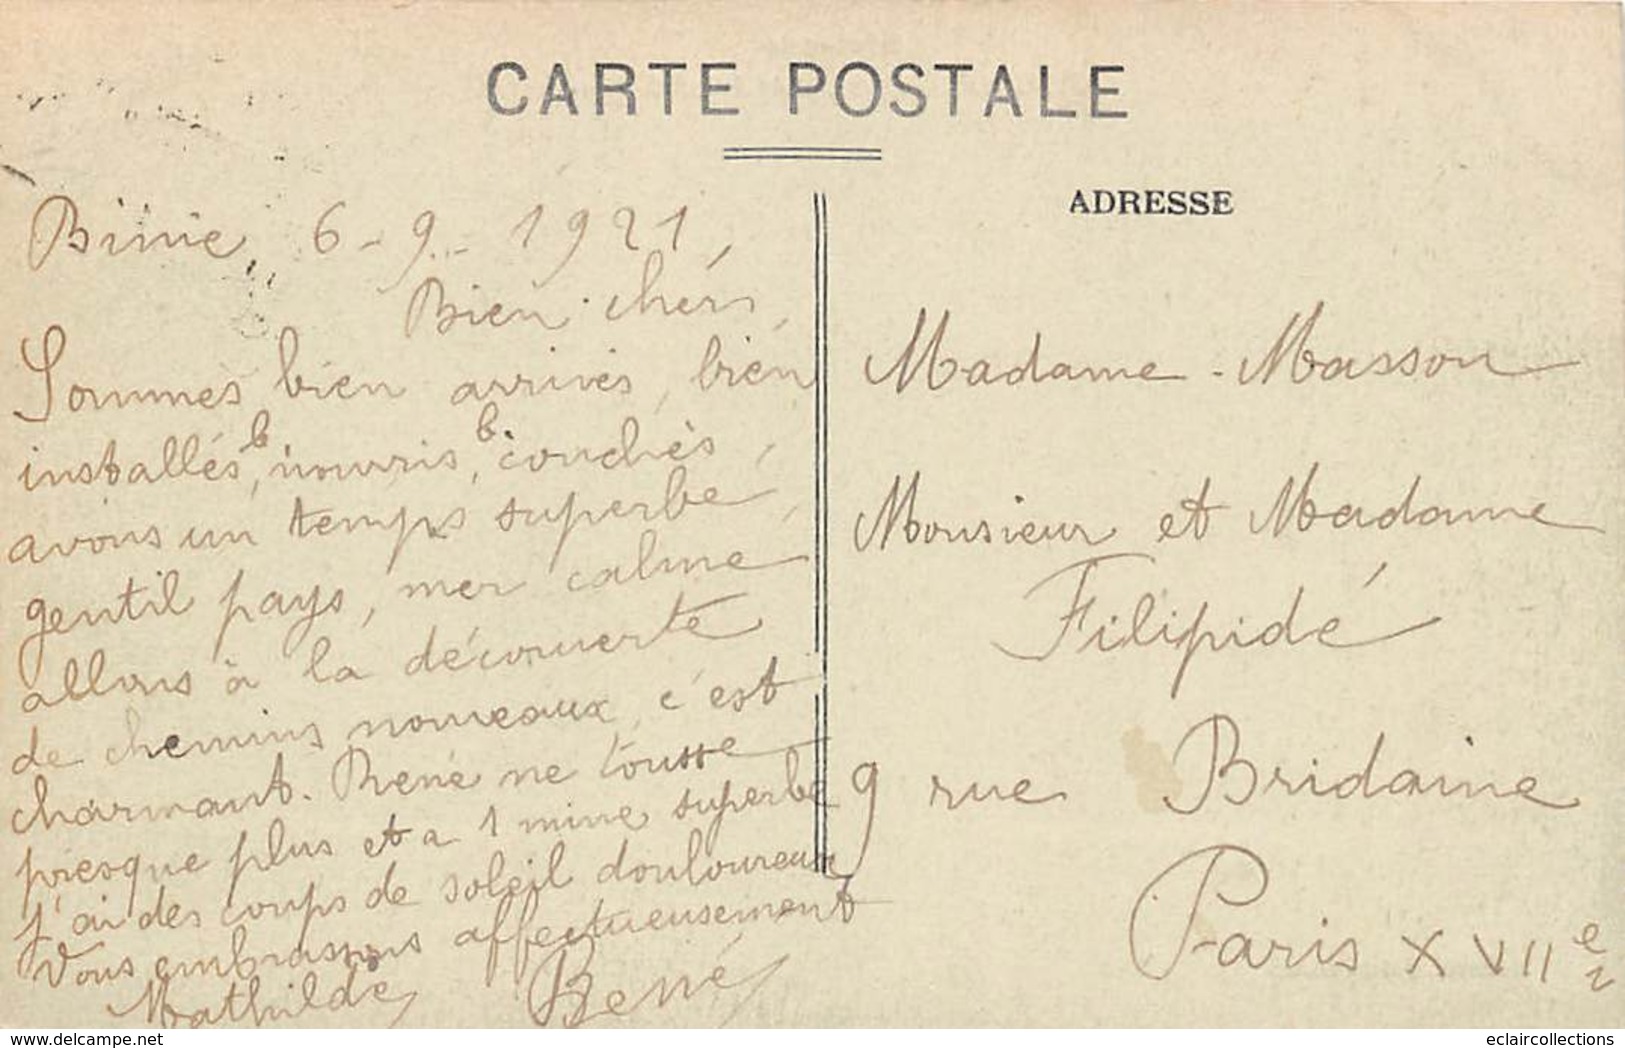 CARTE POSTALE
ADRESSE
Binic, 6-9-1921,
Bien chers,
Sommes bien arrivés, bien
installés, b nourris, b couchés,
avons un temps superbe,
gentil pays, mer calme
allons à la découverte
de chemins nouveaux, c'est
charmant. René ne tousse
presque plus et a 1 mine superbe
J'ai des coups de soleil douloureux
Vous embrassons affectueusement
Mathilde, René
Madame Masson
Monsieur et Madame
Filipidé
9 rue Bridaine
Paris XVIIe
delcampe.net
eclaircollections